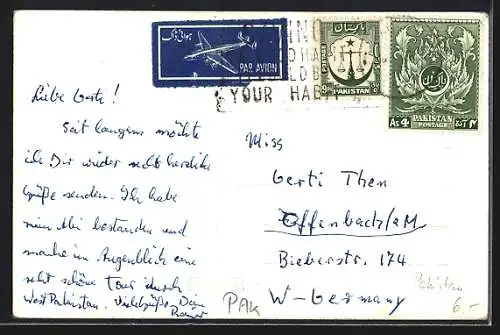 ہوائی ڈاک
PAR AVION
YOUR HABIT
PAKISTAN
PAKISTAN
POSTAGE
As 4
Liebe Gerti!
Seit langem möchte
ich Dir wieder recht herzliche
Grüße senden. Ich habe
mein Abi bestanden und
mache im Augenblick eine
sehr schöne Tour durch
West Pakistan. Viele Grüße, Dein
Rainer
Miss
Gerti Then
Offenbach/a M
Bieberstr. 174
W-Germany
PAK
Pakistan
6.-